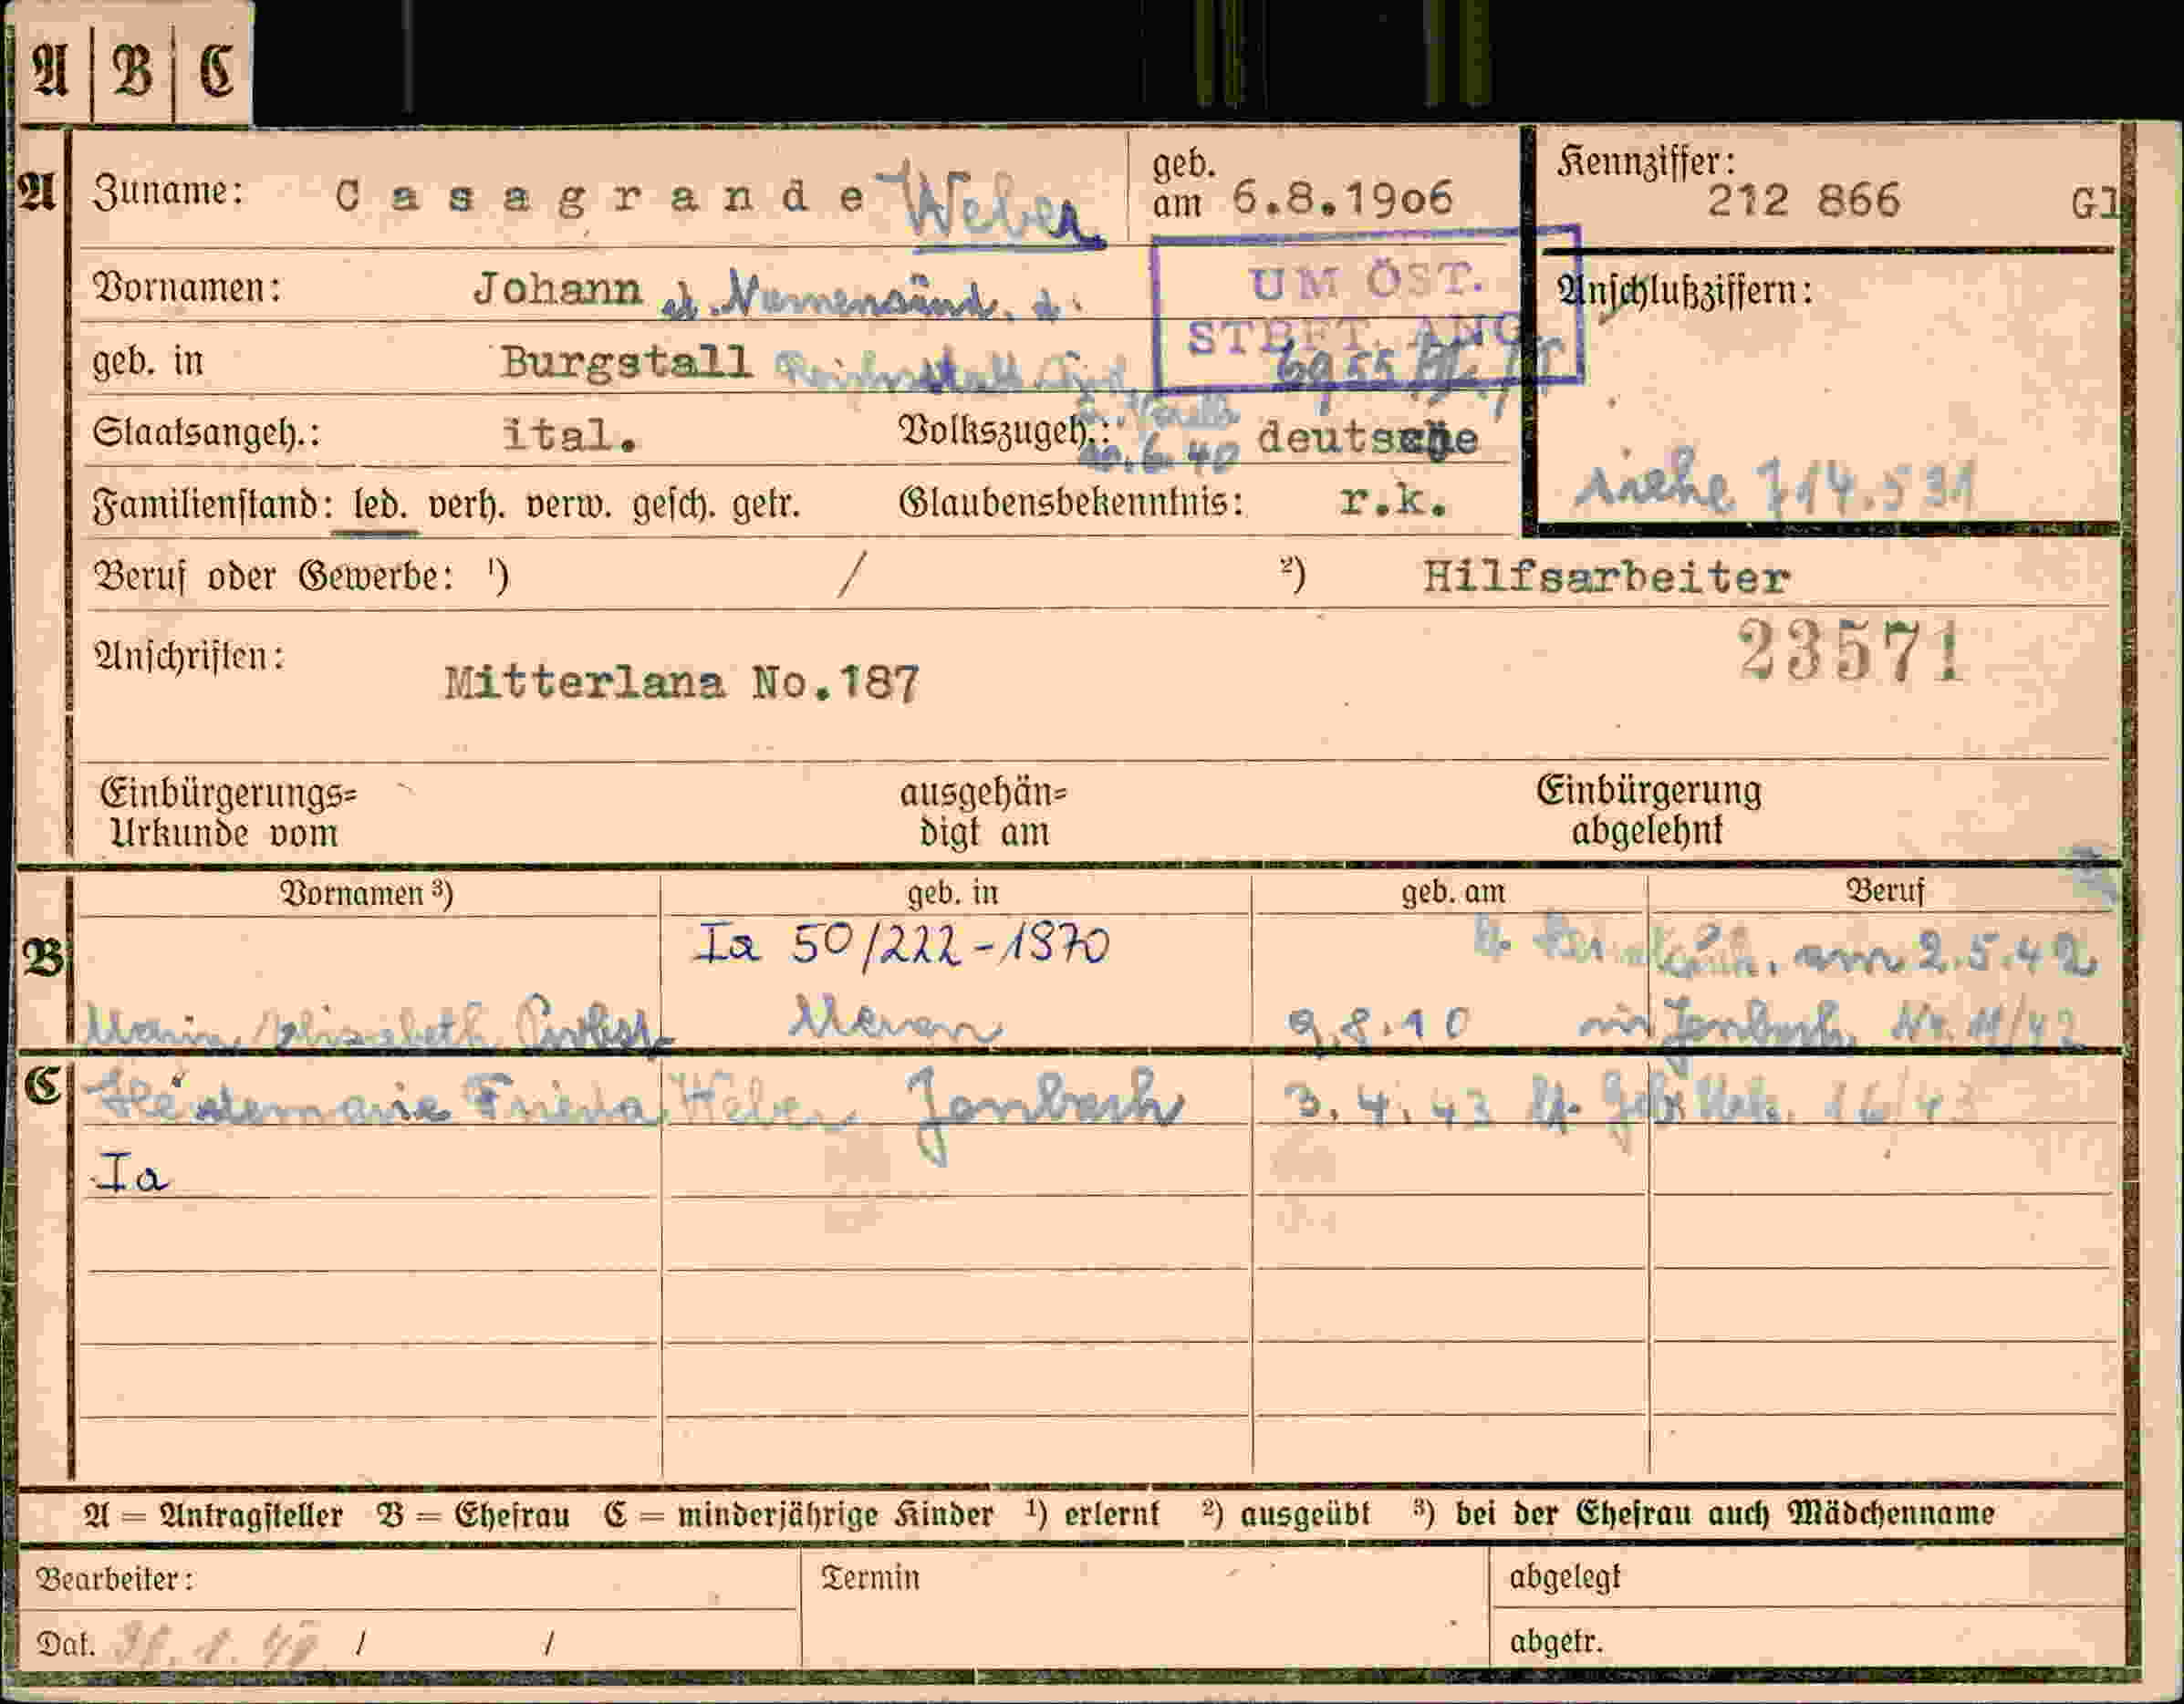 A | B | C
A Zuname: Casagrande Weber geb. am 6.8.1906 Kennziffer: 212 866 Gl
Vornamen: Johann UM ÖST. Anschlußziffern:
STBFT. ANG.
geb. in Burgstall
Staatsangeh.: ital. Volkszugeh.: deutsche
10.6.40
siehe 714.531
Familienstand: led. verh. verw. gesch. getr. Glaubensbekenntnis: r.k.
Beruf oder Gewerbe: ¹) / ²) Hilfsarbeiter
23571
Anschriften: Mitterlana No.187
Einbürgerungs= ausgehän= Einbürgerung
Urkunde vom digt am abgelehnt
Vornamen ³) geb. in geb. am Beruf
B Ia 50/222-1970 am 2.5.42
Maria Elisabeth Meran 9.8.10 in Jenbach Nr. 11/42
C Heidemarie Frieda Weber Jenbach 3.4.43 lt. Geb. Urk. 16/43
Ia
A = Antragsteller B = Ehefrau C = minderjährige Kinder ¹) erlernt ²) ausgeübt ³) bei der Ehefrau auch Mädchenname
Bearbeiter: Termin abgelegt
Dat. / / abgetr.